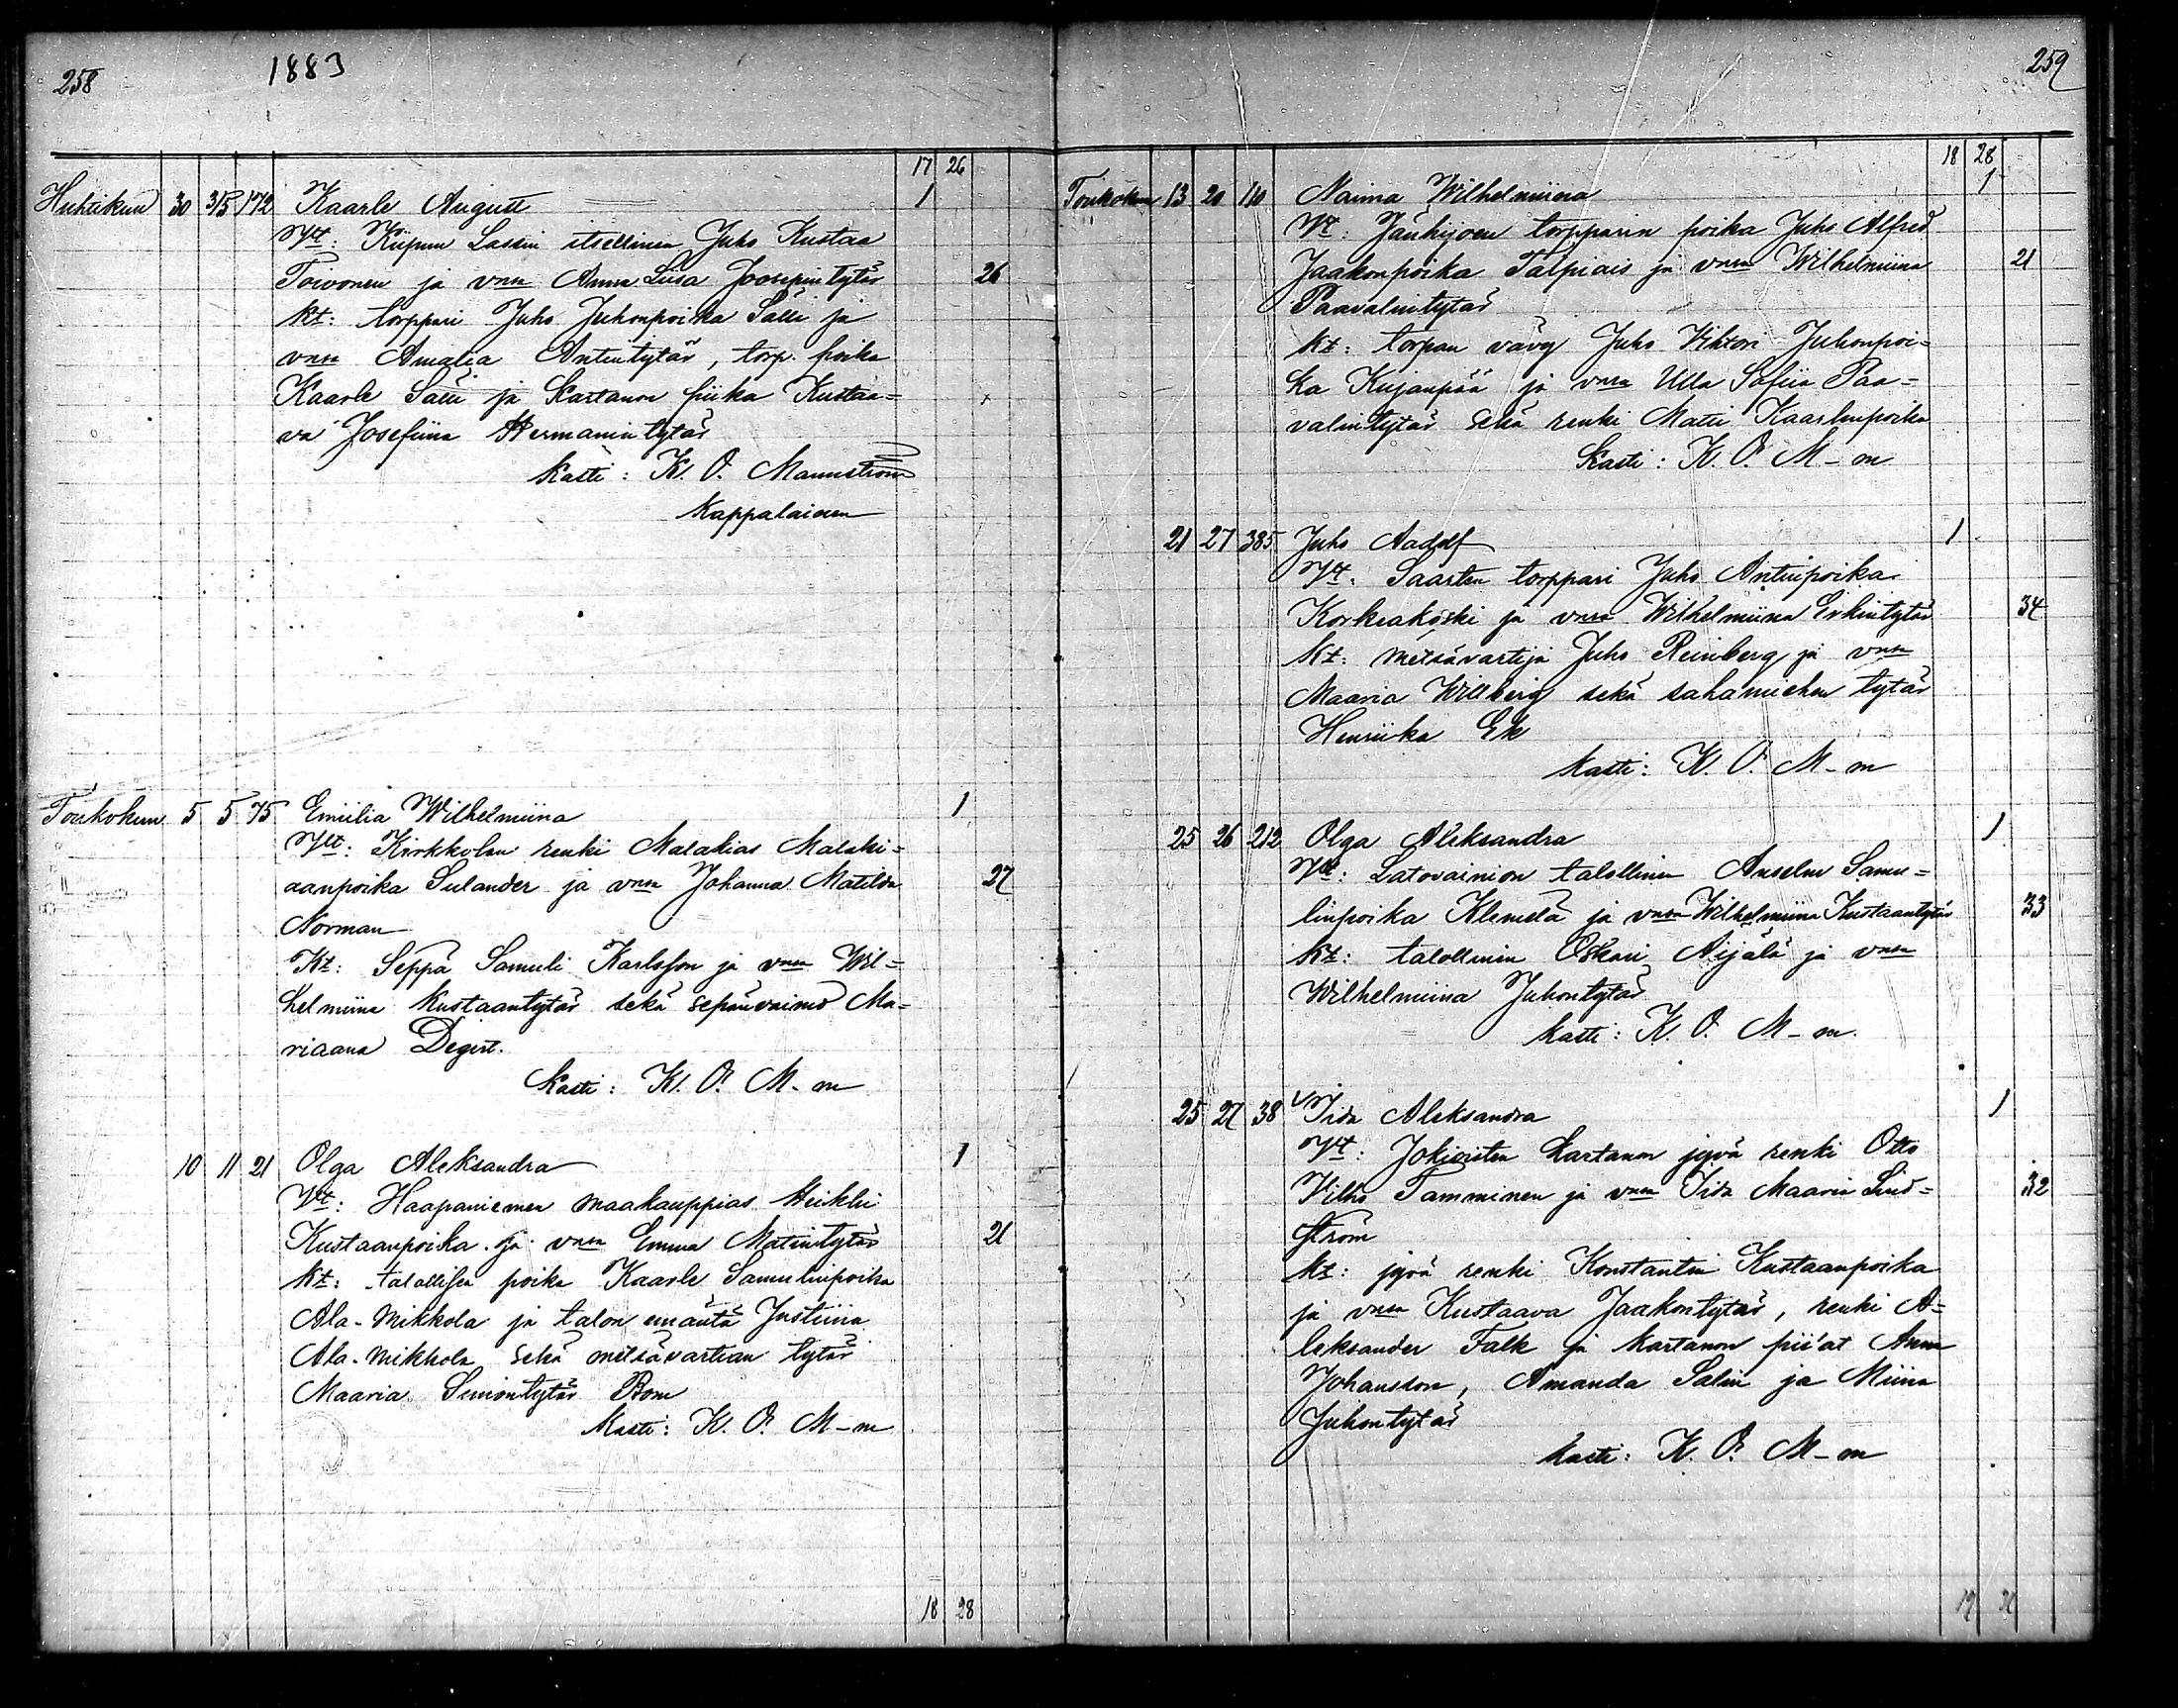 258
1883
17 26
Huhtikuu 30 3/5 172 Kaarle August 1
Vt: Kiipun Lassin itsellinen Juho Kustaa
Toivonen ja vmsa Anna Liisa Joosepintytär 26
Kt: torppari Juho Juhonpoika Sälli ja
vmsa Amalia Antintytär, torp. poika
Kaarle Sälli ja Kartanon piika Kustaa=
va Josefiina Hermanintytär
Kasti: K. O. Mannström
Kappalainen
Toukokuu 5 5 75 Emiilia Wilhelmiina 1
Vt: Kirkkolan renki Malakias Malaki=
aanpoika Sulander ja vmsa Johanna Matilda 27
Norman
Kt: Seppä Samuli Karlsson ja vmsa Wil=
helmiina Kustaantytär sekä sepänvaimo Ma-
riaana Degert.
Kasti: K. O. M-m
10 11 21 Olga Aleksandra 1
Vt: Haapaniemen maakauppias Heikki
Kustaanpoika ja vmsa Emma Matintytär 21
Kt: talollisen poika Kaarle Samulinpoika
Ala-Mikkola ja talon emäntä Justiina
Ala-Mikkola sekä metsävartian tytär
Maaria Simontytär Rom
Kasti: K. O. M-m
18 28
259
18 28
Toukokuu 13 20 110 Naima Wilhelmiina 1
Vt: Jänhijoen torpparin poika Juho Alfred
Jaakonpoika Talpiais ja vmsa Wilhelmiina 21
Paavalintytär
Kt: torpan vävy Juho Viktori Juhonpoi=
ka Kujanpää ja vmsa Ulla Sofiia Paa=
valintytär sekä renki Matti Kaarlenpoika
Kasti: K. O. M-m
21 27 385 Juho Aadolf 1
Vt: Saarten torppari Juho Antinpoika
Korkeakoski ja vmsa Wilhelmiina Erkintytär 34
Kt: metsävartija Juho Reinberg ja vmsa
Maaria Willberg sekä sahamiehen tytär
Henriika Ek
Kasti: K. O. M-m
25 26 212 Olga Aleksandra 1
Vt: Latovainion talollinen Anselm Samu=
linpoika Klemelä ja vmsa Wilhelmiina Kustaantytär 33
Kt: talollinen Oskari Äijälä ja vmsa
Wilhelmiina Juhontytär
Kasti: K. O. M-m.
25 27 38 Iida Aleksandra 1
Vt: Jokioisten Kartanon jyvä renki Otto
Vilho Tamminen ja vmsa Iida Maaria Lind= 32
ström
Kt: jyvä renki Konstantin Kustaanpoika
ja vmsa Kustaava Jaakontytär, renki A=
leksander Falk ja Kartanon pii'at Anna
Johansson, Amanda Salin ja Miina
Juhontytär
Kasti: K. O. M-m
19